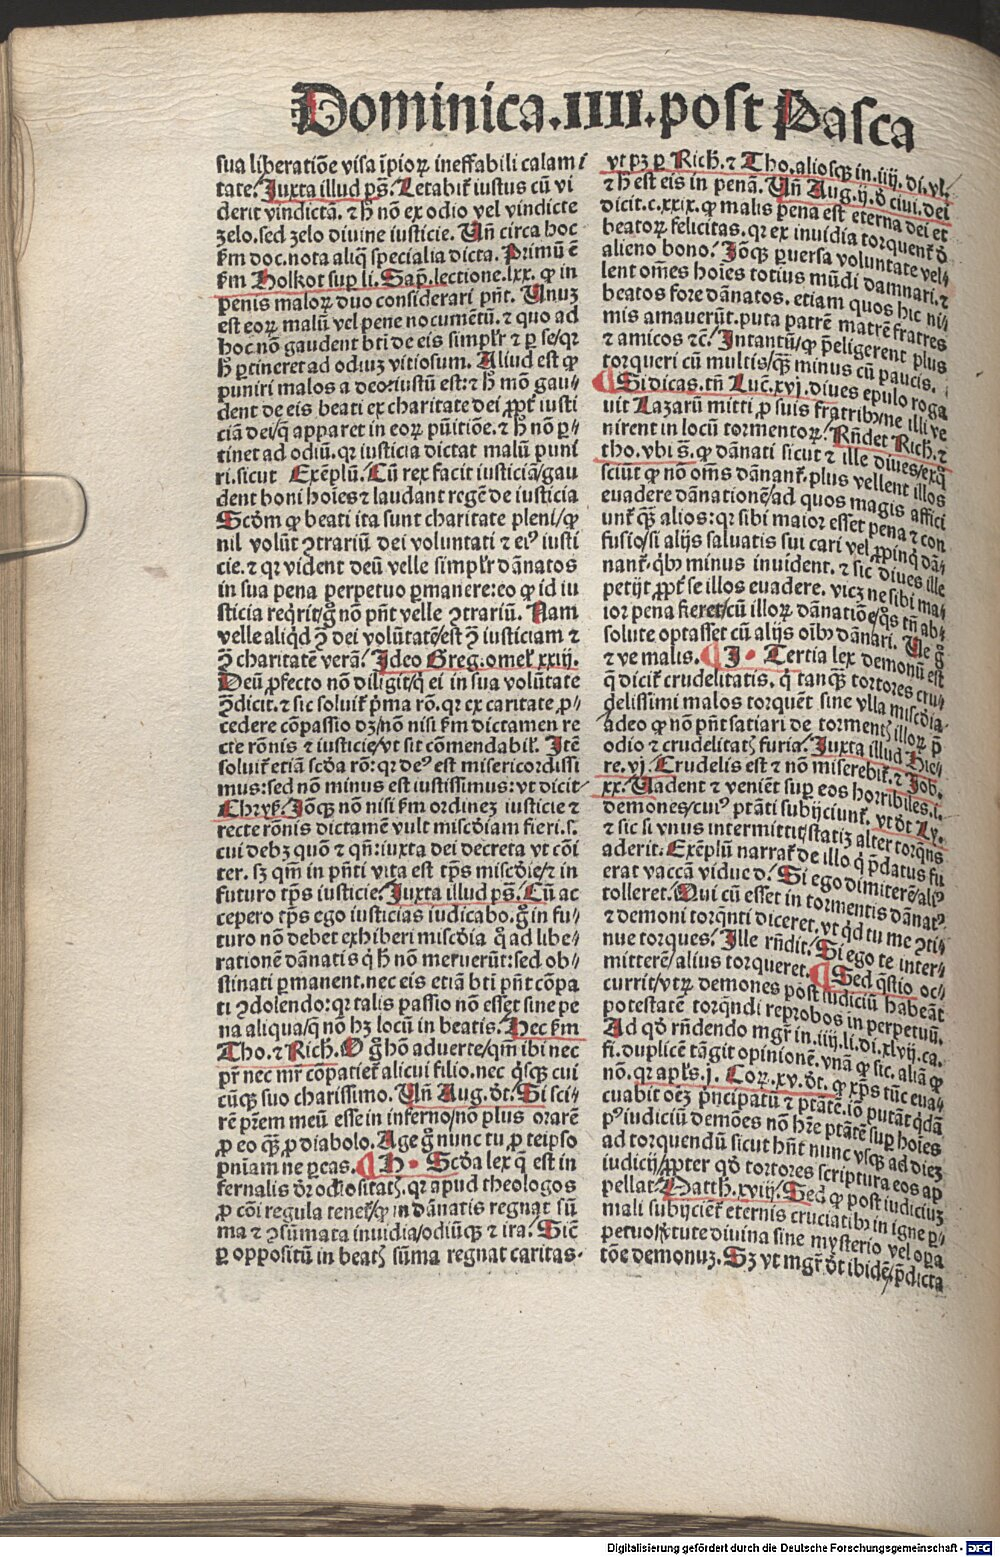 Dominica.IIII.post Pasca
sua liberatiōe visa īpioꝝ ineffabili calami
tate. Juxta illud ps̄. Letabiť iustus cū vi
derit vindictā. ⁊ ꝧ nō ex odio vel vindicte
zelo. sed zelo diuine iusticie. Un̄ circa hoc
ẜm doc. nota aliq̄ specialia dicta. Primū ē
ẜm Holkot sup li. Sap̄. lectione. lxx. ꝙ in
penis maloꝝ duo considerari pn̄t. Unuz
est eoꝝ malū vel pene nocumētū. ⁊ quo ad
hoc nō gaudent bti de eis simplr̄ ⁊ ꝑ se/qr
ꝧ ꝑtineret ad odiuz vitiosum. Aliud est ꝙ
puniri malos a deo: iustū est: ⁊ ꝧ mō gau⸗
dent de eis beati ex charitate dei ꝓpť iusti
ciā dei/q̄ apparet in eoꝝ pūitiōe. ⁊ ꝧ nō ꝑ⸗
tinet ad odiū. qr iusticia dictat malū puni
ri. sicut Exēplū. Cū rex facit iusticiā/gau
dent boni hoīes ⁊ laudant regē de iusticia
Scd̄m ꝙ beati ita sunt charitate pleni/ꝙ
nil volūt ꝯtrariū dei voluntati ⁊ eiꝰ iusti
cie. ⁊ qr vident deū velle simplr̄ dānatos
in sua pena perpetuo ꝑmanere: eo ꝙ id iu
sticia reqͥrit/gͦ nō pn̄t velle ꝯtrariū. Nam
velle aliqͥd ꝯ̄ dei volūtatē/est ꝯ̄ iusticiam ⁊
ꝯ̄ charitatē verā. Ideo Greg. omel. xxiij.
Deū ꝓfecto nō diligit/qͥ ei in sua volūtate
ꝯ̄dicit. ⁊ sic soluiť pͥma rō. qr ex caritate ꝓ⸗
cedere cōpassio dꝫ/nō nisi ẜm dictamen re
cte rōnis ⁊ iusticie/vt sit cōmendabiť. Itē
soluiť etiā scd̄a rō: qr deꝰ est misericordissi
mus: sed nō minus est iustissimus: vt dicit
Chryẜ. Ioͨqꝫ nō nisi ẜm ordinez iusticie ⁊
recte rōnis dictamē vult misc̄diam fieri. s.
cui debꝫ quō ⁊ qn̄: iuxta dei decreta vt cōi
ter. sꝫ qm̄ in pn̄ti vita est tp̄s misc̄die/⁊ in
futuro tp̄s iusticie. Juxta illud ps̄. Cū ac
cepero tp̄s ego iusticias iudicabo. gͦ in fu⸗
turo nō debet exhiberi misc̄dia q̄ ad libe⸗
rationē dānatis qͥ ꝧ nō meruerūt: sed ob⸗
stinati ꝑmanent. nec eis etiā bti pn̄t cōpa
ti ꝯdolendo: qr talis passio nō esset sine pe
na aliqua/q̄ nō hꝫ locū in beatis. Hec ẜm
Tho. ⁊ Rich. O gͦ hō aduerte/qm̄ ibi nec
pr̄ nec mr̄ cōpatieť alicui filio. nec qͥsqꝫ cui
cūqꝫ suo charissimo. Un̄ Aug. d̄t. Si sci⸗
rē pr̄em meū esse in inferno/nō plus orarē
ꝓ eo qꝫ ꝓ diabolo. Age gͦ nunc tu ꝓ teipso
pn̄iam ne ꝑeas. ¶ H. Scd̄a lex q̄ est in
fernalis d̄r odiositatꝭ. qr apud theologos
ꝓ cōi regula teneť/ꝙ in dānatis regnat sū
ma ⁊ ꝯsūmata inuidia/odiūqꝫ ⁊ ira. Sicē
ꝑ oppositū in beatꝭ sūma regnat caritas.
vt pꝫ ꝑ Rich. ⁊ Tho. aliosqꝫ in. iiij. di. vl.
⁊ ꝧ est eis in penā. Un̄ Aug. ij. d̄ ciui. dei
dicit. c. xxix. ꝙ malis pena est eterna dei et
beatoꝝ felicitas. qr ex inuidia torquenť d̄
alieno bono. Ioͨqꝫ ꝑuersa voluntate vel⸗
lent om̄es hoīes totius mūdi damnari. ⁊
beatos fore dānatos. etiam quos hic ni⸗
mis amauerūt. puta patrē matrē fratres
⁊ amicos ⁊c̄. Intantū/ꝙ p̄eligerent plus
torqueri cū multis/qꝫ minus cū paucis.
¶ Si dicas. tn̄ Luc̄. xvj. diues epulo roga
uit Lazarū mitti ꝓ suis fratribꝰ/ne illi ve
nirent in locū tormentoꝝ. Rn̄det Rich. ⁊
tho. vbi s̄. ꝙ dānati sicut ⁊ ille diues/ex quo
sciūt ꝙ nō om̄s dānanť. plus vellent illos
euadere dānationē/ad quos magis affici
unť qꝫ alios: qr sibi maior esset pena ⁊ con
fusio/si alijs saluatis sui cari vel ꝓpinqͥ dā⸗
nanť. qͥbꝰ minus inuident. ⁊ sic diues ille
petijt ꝓpť se illos euadere. vicꝫ ne sibi ma⸗
ior pena fieret/cū illoꝝ dānatiōe/qͦs tn̄ ab⸗
solute optasset cū alijs oībꝰ dānari. Ue gͦ
⁊ ve malis. ¶ J. Tertia lex demonū est
q̄ diciť crudelitatis. qꝫ tanqꝫ tortores cru⸗
delissimi malos torquēt sine vlla misc̄dia.
adeo ꝙ nō pn̄t satiari de tormentꝭ illoꝝ p̄
odio ⁊ crudelitatꝭ furia. Juxta illud Hie⸗
re. vj. Crudelis est ⁊ nō miserebiť. ⁊ Job.
xx. Uadent ⁊ veniēt sup eos horribiles. i.
demones/cuiꝰ ptāti subijciunť. vt d̄t Ly.
⁊ sic si vnus intermittit/statiz alter torqn̄s
aderit. Exēplū narrať de illo qͥ p̄datus fu
erat vaccā vidue d̄. Si ego dimiterē/aliꝰ
tolleret. Qui cū esset in tormentis dānatꝰ
⁊ demoni torqn̄ti diceret. vt qͥd tu me ꝯti⸗
nue torques? Ille rn̄dit. Si ego te inter⸗
mitterē/alius torqueret. ¶ Sed qͦstio oc⸗
currit/vtꝝ demones post iudiciū habeāt
potestatē torquēdi reprobos in perpetuū.
Ad qd̄ rn̄dendo mgr̄ in. iiij. li. di. xlvij. ca.
fi. duplicē tāgit opinionē. vnā ꝙ sic. aliā ꝙ
nō. qr apl̄s. j. Coꝝ. xv. d̄t. ꝙ xp̄s tūc eua⸗
cuabit oēꝫ pͥncipatū ⁊ ptātē. iō putāt qͥdā
pꝰ iudiciū demōes nō hr̄e ptātē sup hoīes
ad torquendū sicut hn̄t nunc vsqꝫ ad diez
iudicij/ꝓpter qd̄ tortores scriptura eos ap
pellat. Matth. xviij. Sed ꝙ post iudiciuz
mali subijcienť eternis cruciatibꝰ in igne ꝑ⸗
petuo/ꝟtute diuina sine mysterio vel opa
tōe demonuz. Sꝫ vt mgr̄ d̄t ibidē/p̄dicta
Digitalisierung gefördert durch die Deutsche Forschungsgemeinschaft - DFG